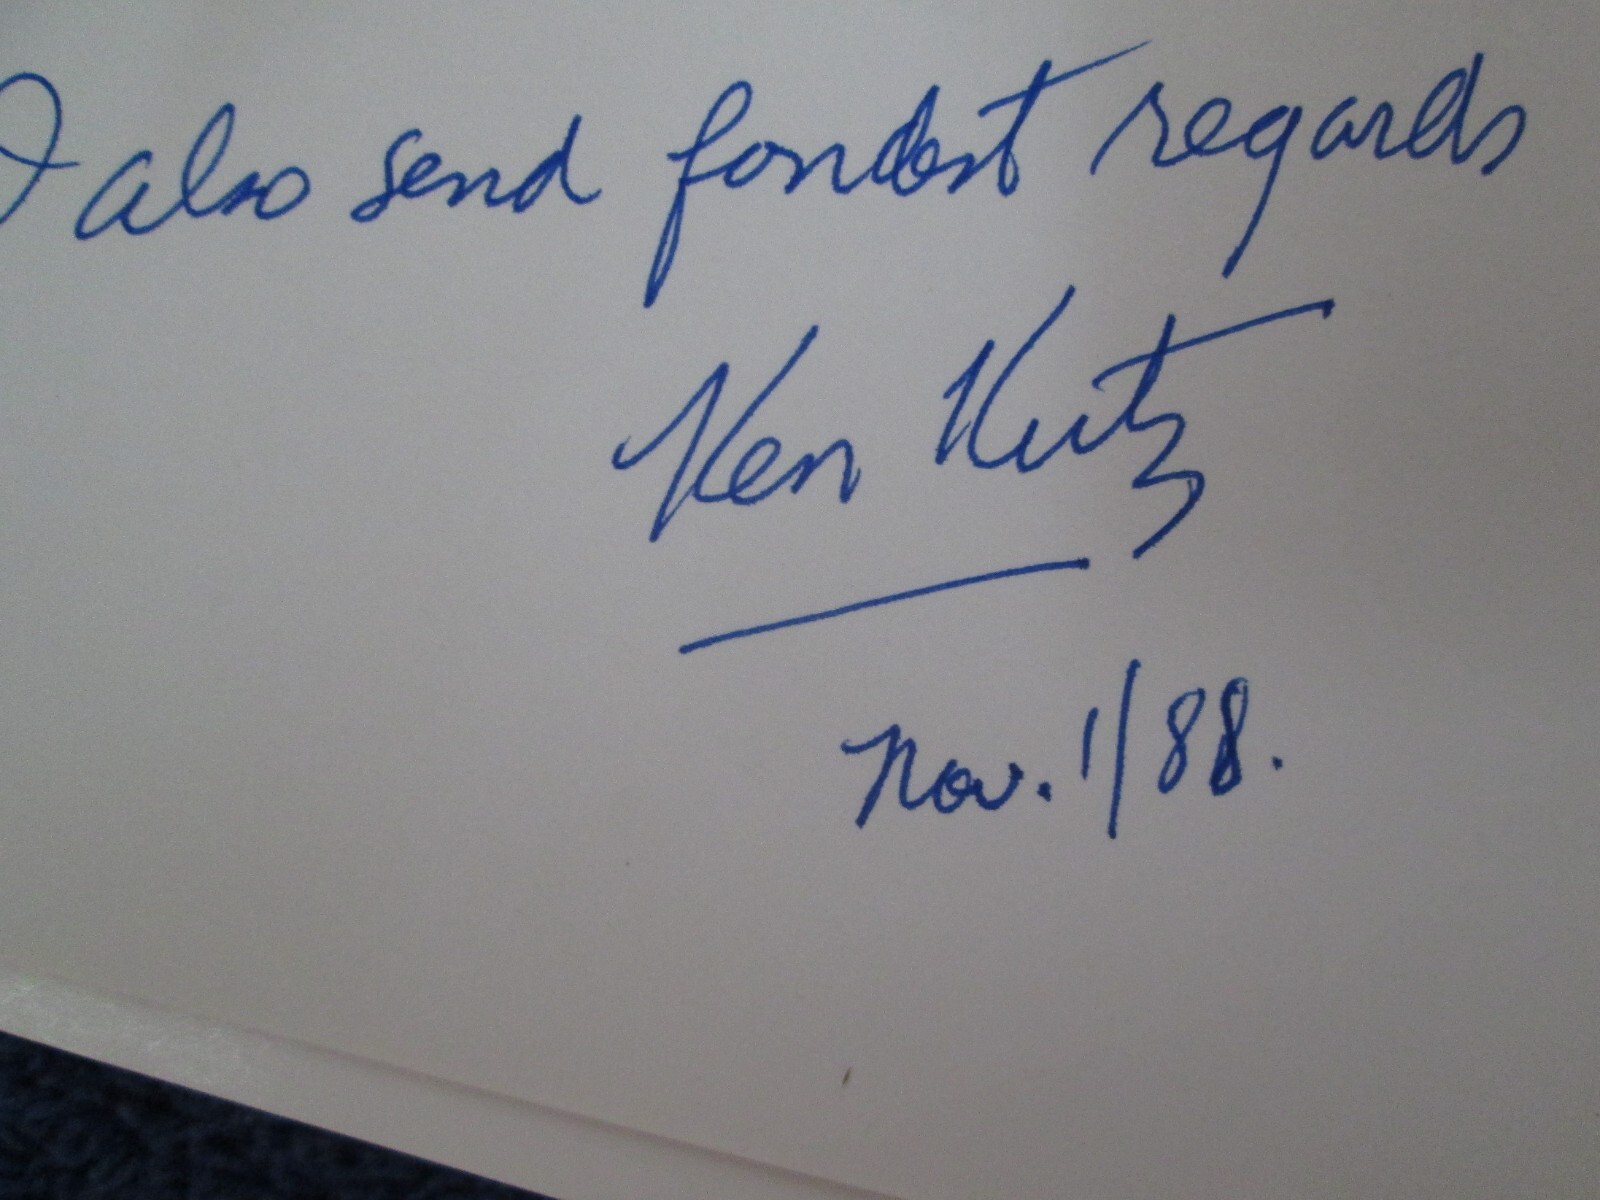 I also send fondest regards
Ken Kutz
Nov. 1/88.